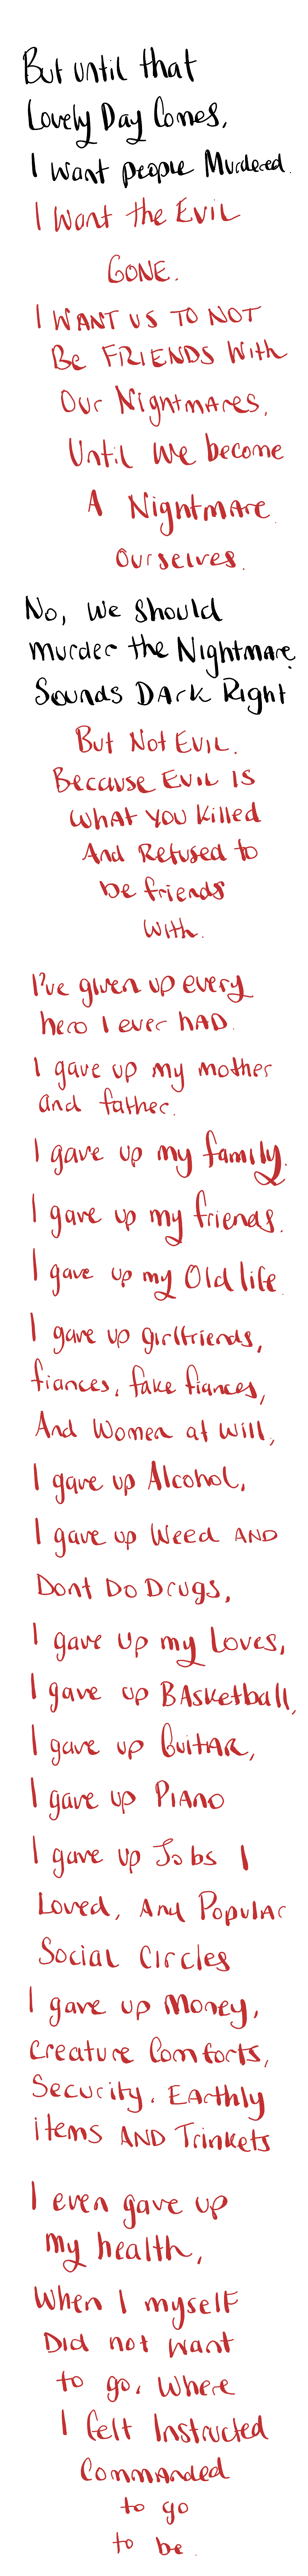 But until that
Lovely Day Comes,
I want people Murdered.
I Want the Evil
GONE.
I WANT US TO NOT
Be FRIENDS With
Our Nightmares,
Until We become
A Nightmare
Ourselves.
No, We Should
murder the Nightmare.
Sounds DArk Right
But Not EVIL.
Because EVIL IS
WHAT YOU Killed
And Refused to
be friends
With.
I've given up every
hero I ever HAD.
I gave up my mother
and father.
I gave up my family.
I gave up my friends.
I gave up my Old life.
I gave up girlfriends,
fiances, fake fiances,
And Women at Will,
I gave up Alcohol,
I gave up Weed AND
Dont Do Drugs,
I gave up my Loves,
I gave up BAsketball,
I gave up GuitAR,
I gave up PIANO
I gave up Jobs I
Loved, And Popular
Social Circles
I gave up Money,
Creature Comforts,
Security, EArthly
items AND Trinkets
I even gave up
my health,
When I myself
Did not want
to go, Where
I felt Instructed
Commanded
to go
to be.